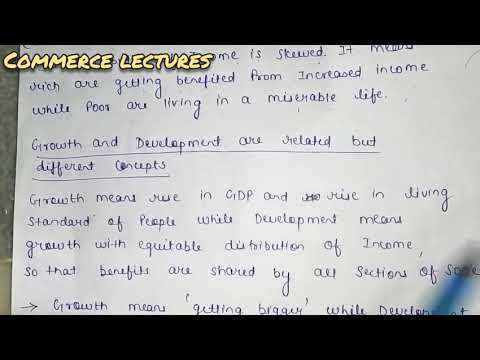 COMMERCE LECTURES
ome is skewed. It means
rich are getting benefited from Increased income
while Poor are living in a miserable life.
Growth and Development are related but
different Concepts
Growth means rise in GDP and rise in living
Standard of People while Development means
growth with equitable distribution of Income,
so that benefits are shared by all Sections of
→ Growth means 'getting bigger' while Development